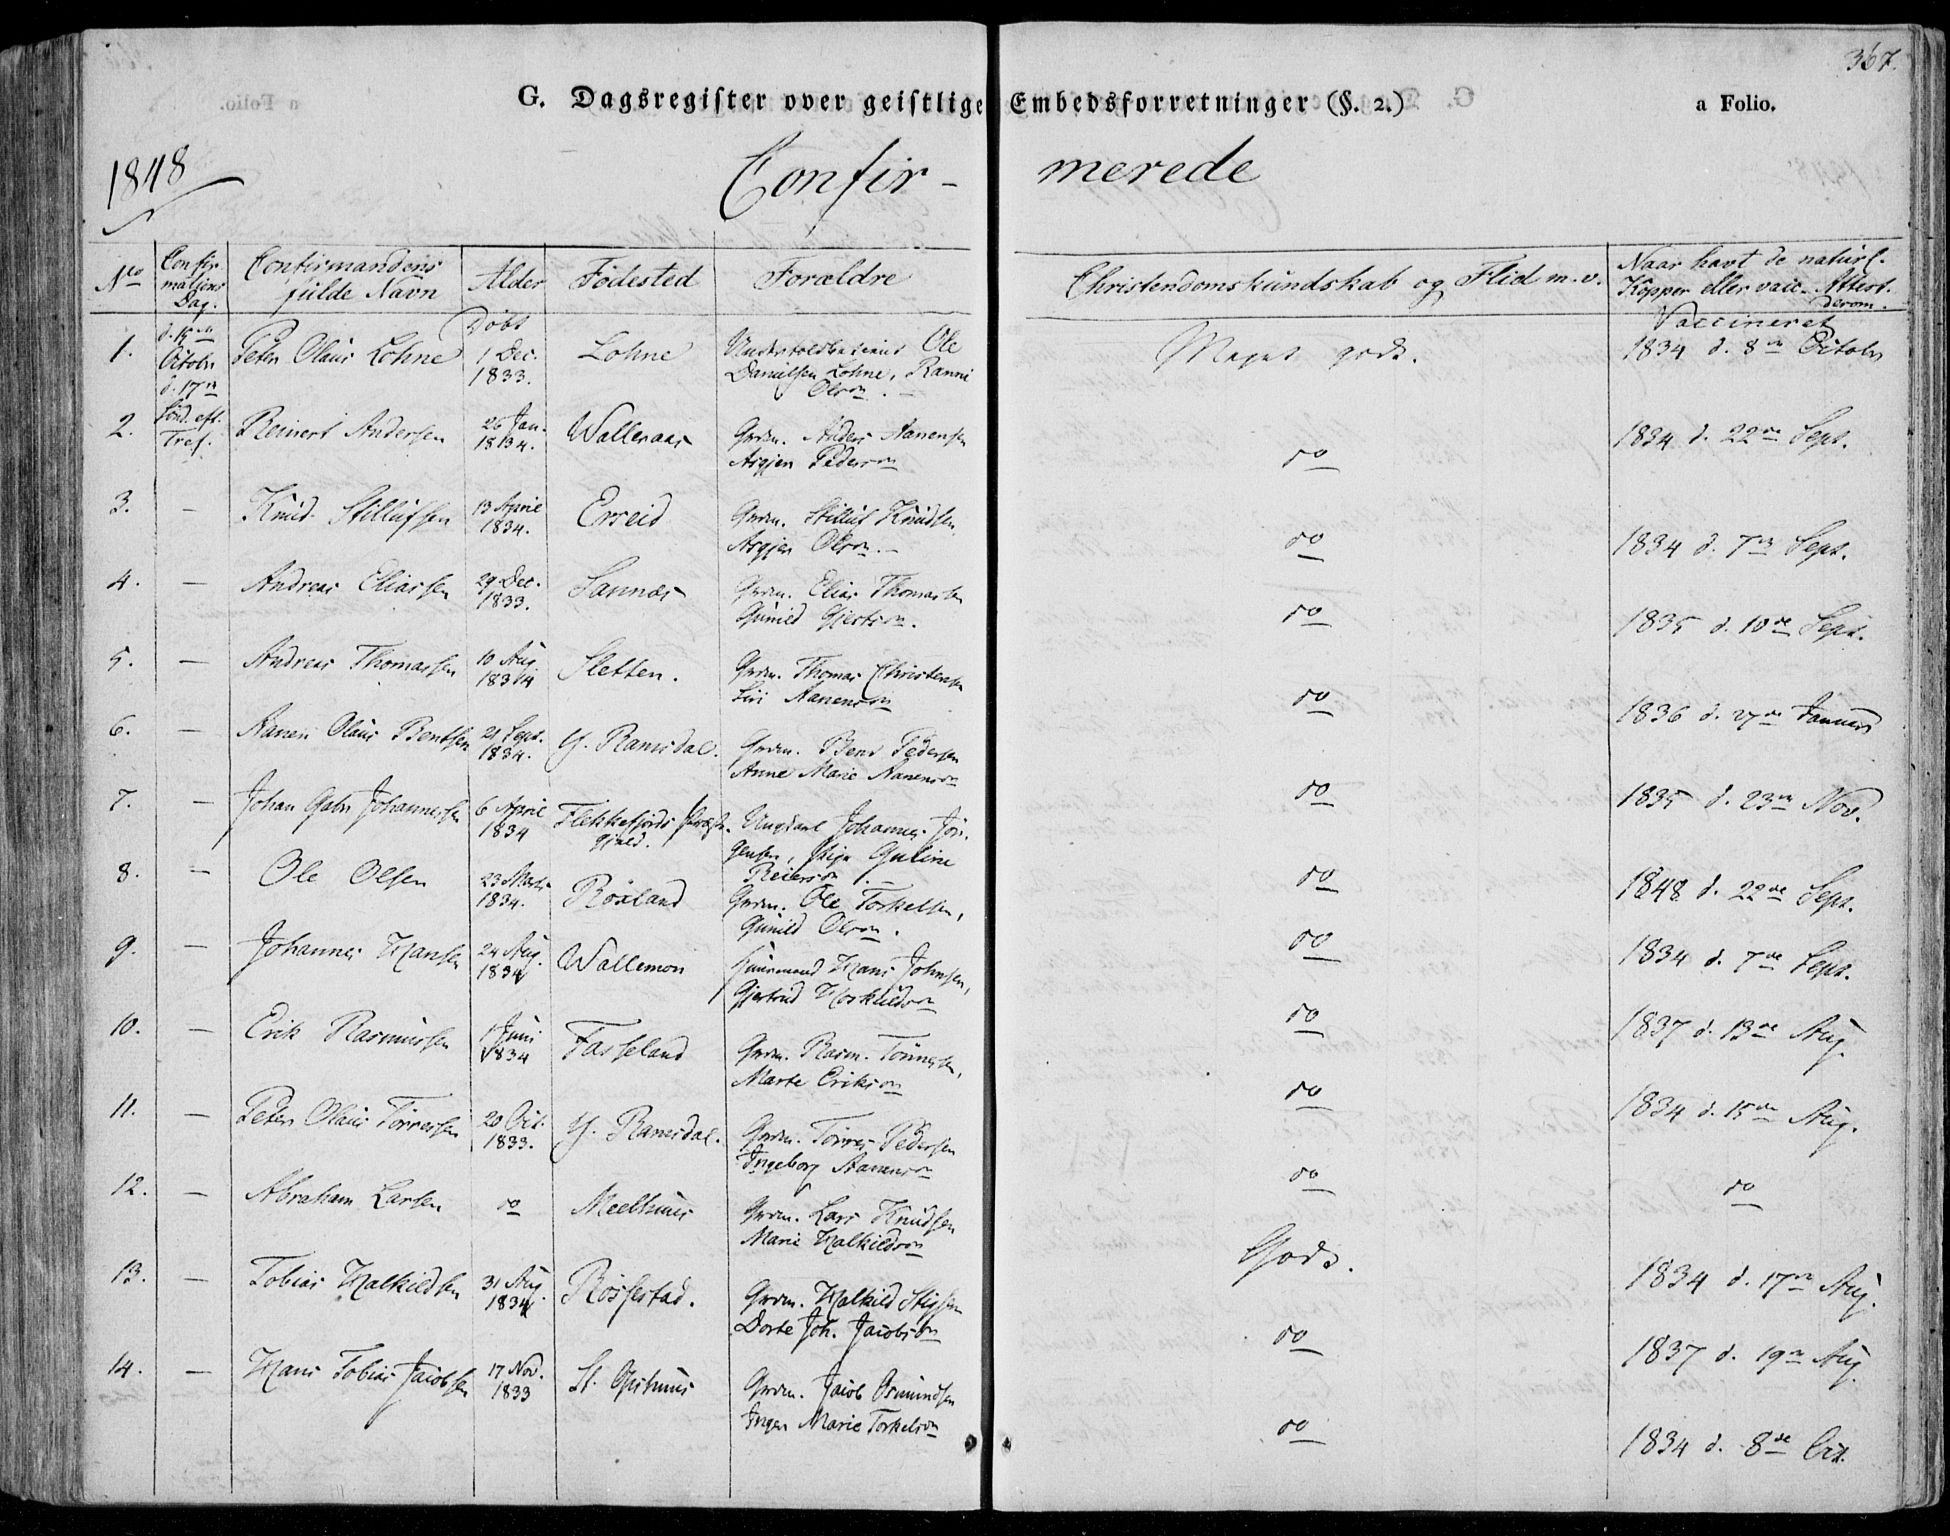 367.
G. Dagsregister over geistlige Embedsforretninger (§. 2.)
a Folio.
1848
Confir- merede
No
Confirmations Dag.
Confirmandens fulde Navn
Alder
Fødested
Forældre
Christendomskundskab og Flid m. v.
Naar havt de naturl. Kopper eller vacc. Attest. derom.
1. d. 15de October d. 17de Sønd. eft. Tref. Peter Olaus Lohne Døbt 1 Dec. 1833. Lohne Ole Danielsen Lohne, Olsdn. Meget godt. Vaccineret 1834 d. 8de October
2. Reinert Andersen 26 Jan. 1834. Walleraas Grdm. Anders Aanensen Asgjer Pedersdn do 1834 d. 22de Sept.
3. – Knud Stillufsen 13 April 1834. Erseid Grdm. Stilluf Knudsen, Asgjer Olsdn. – do 1834 d. 7de Sept.
4. – Andreas Eliassen 29 Dec. 1833. Sannæs Grdm. Elias Thomassen Gunild Gjertsdn. do 1835 d. 10de Sept.
5. – Andreas Thomassen 10 Aug. 1834 Sletten. Grdm. Thomas Christensen Siri Aanensdn do 1836 d. 27de Januar
6. – Aanen Olaus Bentsen 21 Sept. 1834. Y. Ramsdal. Grdm. Bent Pedersen Anne Marie Aanensdn do 1835 d. 23de Nov.
7. – Johan Gabr. Johannessen 6 April 1834 Flekkefjords Præstegjeld. Ungkarl Johannes Jörgensen, Pige Guline Reiersdn. – do 1848 d. 22de Sept.
8. – Ole Olsen 23 Marts 1834. Rösland Grdm. Ole Torkelsen, Gunild Olsdn. do 1834 d. 7de Sept.
9. – Johannes Hansen 24 Aug. 1834 Wallemon Huusmand Hans Johnsen, Gjertrud Hoskuldsdn do 1837 d. 13de Aug.
10. – Erik Rasmussen 1 Juni 1834 Fasseland Grdm. Rasm. Tönnesen, Marte Eriksdn do 1834 d. 15de Aug.
11. – Peter Olaus Törresen 20 Oct. 1833. Y. Ramsdal. Grdm. Törres Pedersen Ingeborg Aanensdn do do
12. – Abraham Larsen do Meelhuus Grdm. Lars Knudsen Marie Halkildsdn Godt. 1834 d. 17de Aug.
13. – Tobias Halkildsen 31 Aug. 1834 Rössestad. Grdm. Halkild Stigsen Dorte Joh. Jacobsdn do 1837 d. 19de Aug.
14. – Hans Tobias Jacobsen 17 Nov. 1833 St. Opsthuus Grdm. Jacob Osmundsen Inger Marie Torkelsdn do 1834 d. 8de Oct.